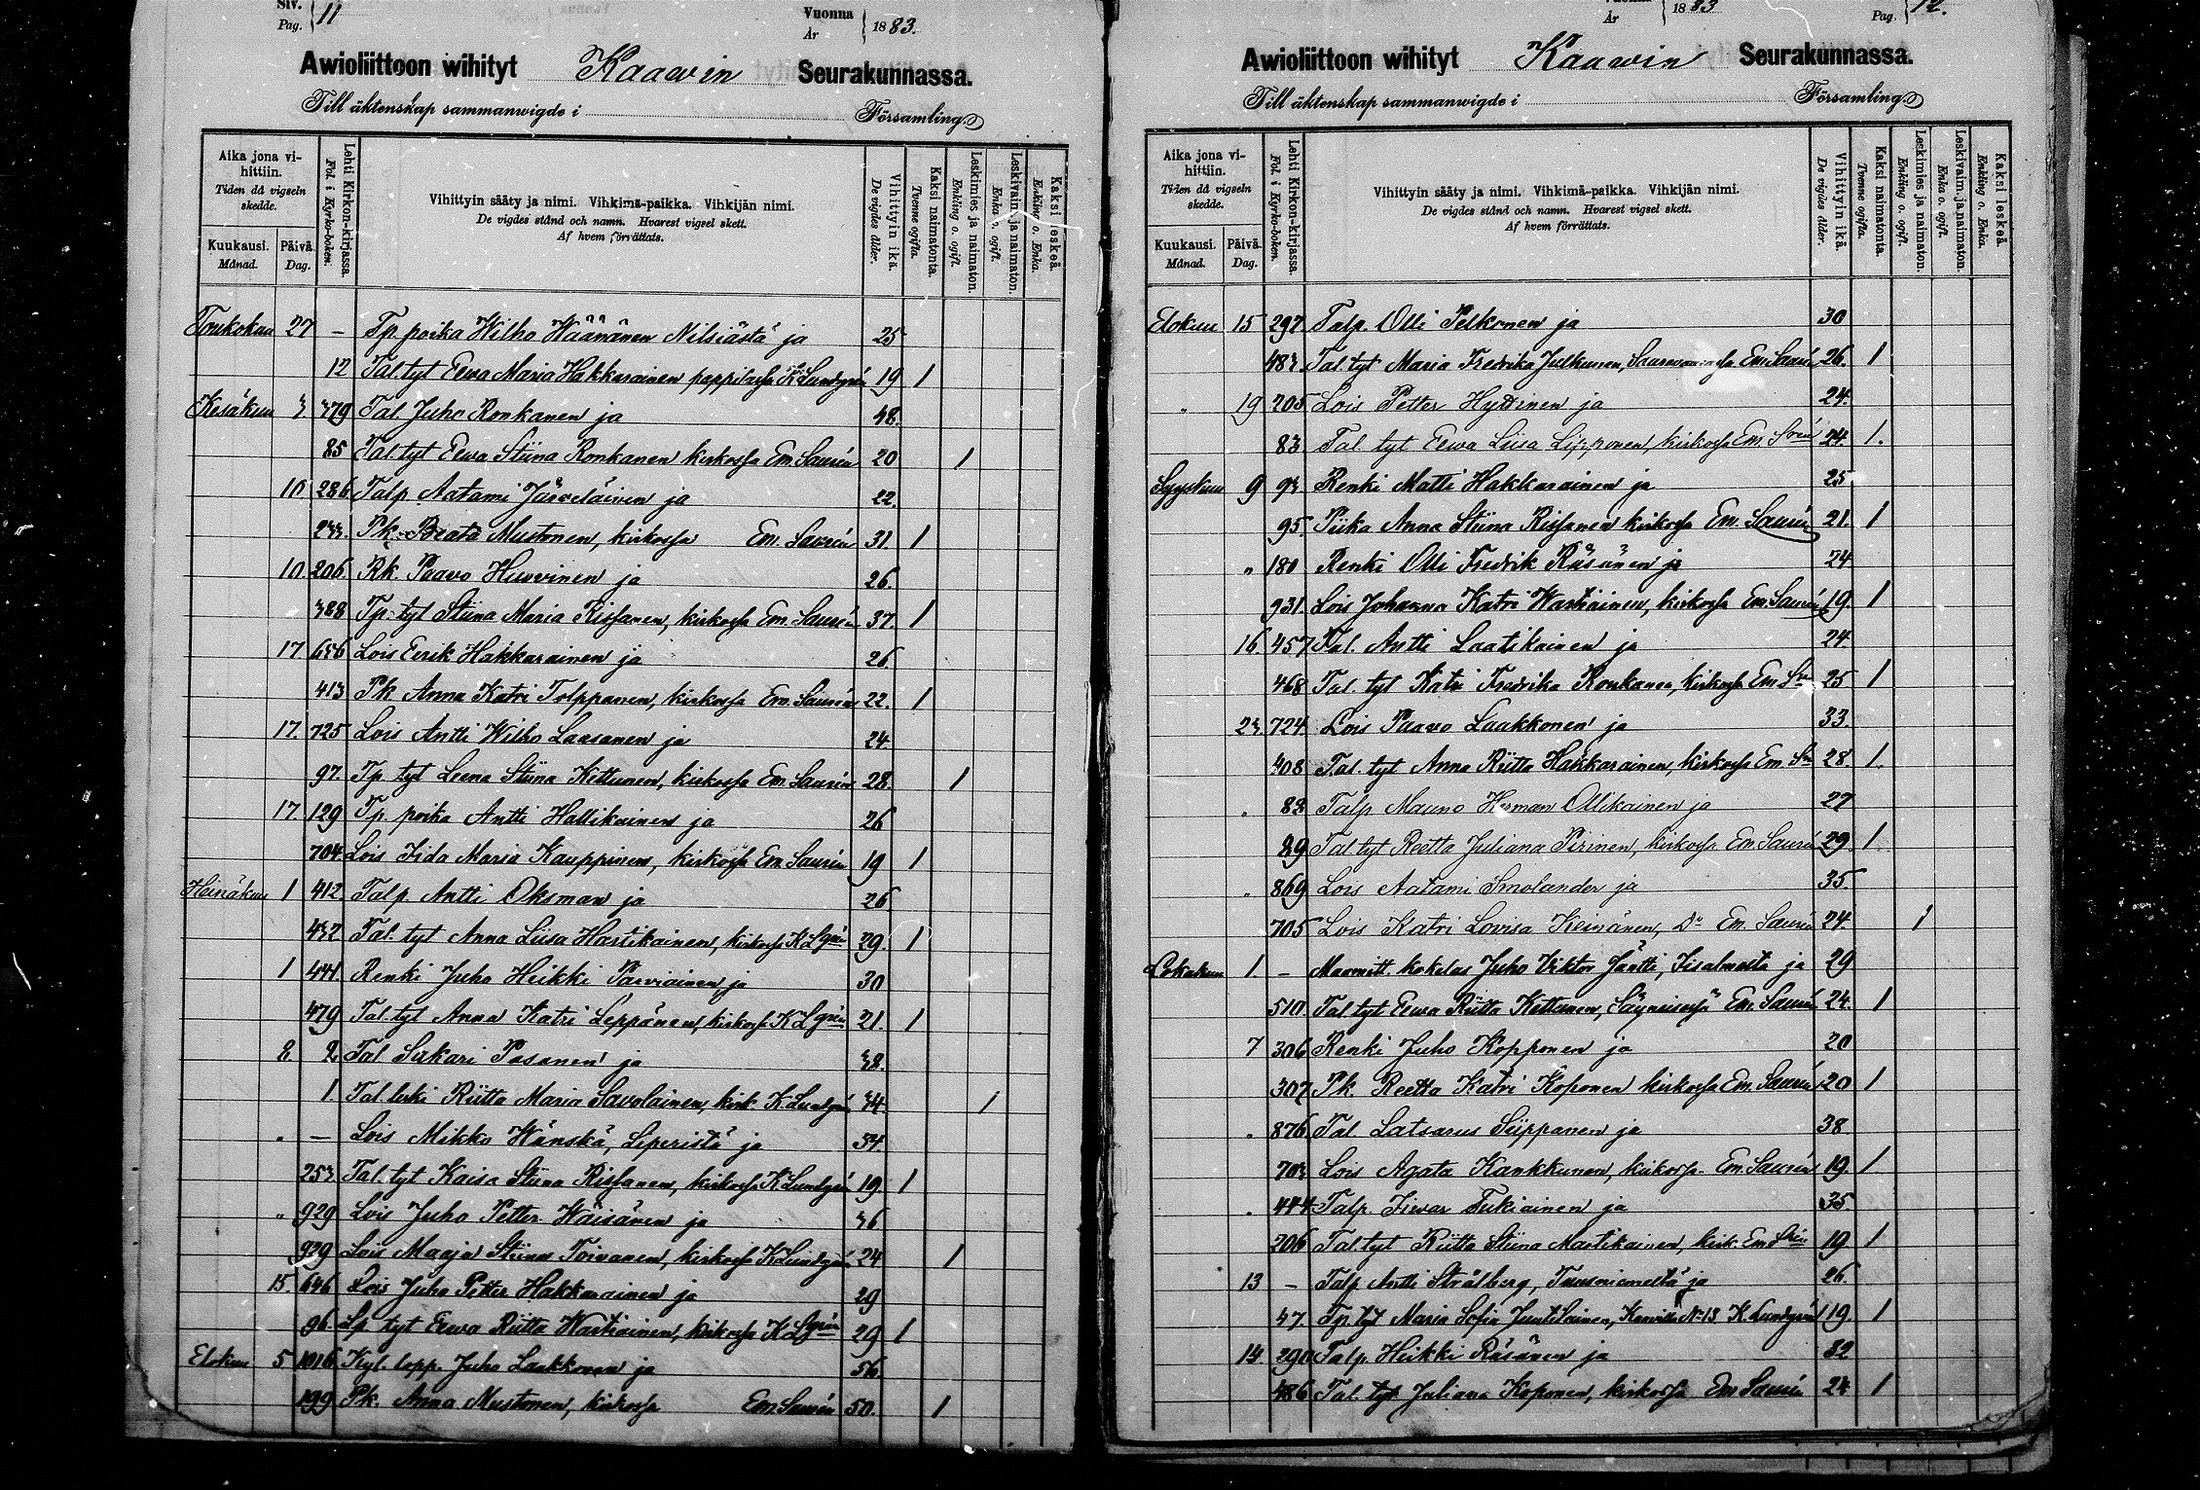 Siv. Pag. 11
Vuonna År 1883.
Awioliittoon wihityt Kaawin Seurakunnassa.
Till äktenskap sammanwigde i Församling
Aika jona vihittiin. Tiden då vigseln skedde.
Kuukausi. Månad. Päivä. Dag.
Lehti Kirkon-kirjassa. Fol. i Kyrko-boken.
Vihittyin sääty ja nimi. Vihkimä-paikka. Vihkijän nimi.
De vigdes stånd och namn. Hvarest vigsel skett.
Af hvem förrättats.
Vihittyin ikä. De vigdes ålder.
Kaksi naimatonta. Tvenne ogifta.
Leskimies ja naimaton. Enkling o. ogift.
Leskivaim. ja naimaton. Enka o. ogift.
Kaksi leskeä. Enkling o. Enka.
Toukokuu 27 – Tp. poika Wilho Häänänen Nilsiästä ja 25
12 Tal. tyt Eewa Maria Hakkarainen pappilassa K Lundgrén 19 1
Kesäkuu 3 379 Tal Juho Ronkanen ja 48.
85 Tal. tyt Eewa Stiina Ronkanen kirkossa Em. Saurén 20 1
10 286 Talp. Aatami Jääveläinen ja 22.
233 Pk. Beata Mustonen, kirkossa Em. Saurén 31. 1
10. 206. Rk. Paavo Huuvinen ja 26.
388 Tp. tyt Stiina Maria Rissanen, kirkossa Em. Saurén 37. 1
17 656 Lois Eerik Hakkarainen ja 26.
413 Pk Anna Katri Tolppanen, kirkossa Em. Saurén 22. 1
17. 725 Lois Antti Wilho Laasanen ja 24
97. Tp. tyt Leena Stiina Kettunen, kirkossa Em. Saurén 28. 1
17. 129 Tp. poika Antti Hallikainen ja 26
704 Lois Iida Maria Kauppinen, kirkossa Em Saurén 19 1
Heinäkuu 1 412. Talp. Antti Oksman ja 26.
432 Tal. tyt Anna Liisa Hartikainen, kirkossa K Lgrén 29. 1
1 441. Renki Juho Heikki Parviainen ja 30
479 Tal. tyt Anna Katri Leppänen, kirkossa K Lgrén 21. 1
8 2. Tal Sakari Pasanen ja 38.
1. Tal. leski Riitta Maria Savolainen, kirk. K Lundgrén 34. 1
" – Lois Mikko Hänskä, Leperistä ja 34.
253 Tal. tyt Kaisa Stiina Rissanen, kirkossa K Lundgrén 19. 1
" 929 Lois Juho Petter Wäisänen ja 36
929 Lois Maaja Stiina Toivanen, kirkossa K Lundgrén 24 1
15. 646 Lois Juho Petter Hakkarainen ja 29
96. Lp tyt Eewa Riitta Wartiainen, kirkossa K Lgrén 29 1
Elokuu 5 1016 Kyl. lopp. Juho Laakkonen ja 56.
199 Pk. Anna Mustonen, kirkossa Em Saurén 50. 1
Vuonna År 1883
Pag. 12.
Awioliittoon wihityt Kaawin Seurakunnassa.
Till äktenskap sammanwigde i Församling
Aika jona vihittiin. Tiden då vigseln skedde.
Kuukausi. Månad. Päivä. Dag.
Lehti Kirkon-kirjassa. Fol. i Kyrko-boken.
Vihittyin sääty ja nimi. Vihkimä-paikka. Vihkijän nimi.
De vigdes stånd och namn. Hvarest vigsel skett.
Af hvem förrättats.
Vihittyin ikä. De vigdes ålder.
Kaksi naimatonta. Tvenne ogifta.
Leskimies ja naimaton. Enkling o. ogift.
Leskivaim. ja naimaton. Enka o. ogift.
Kaksi leskeä. Enkling o. Enka.
Elokuu 15 297 Talp. Olli Pelkonen ja 30
483 Tal. tyt Maria Fredrika Julkunen, Em Saurén 26. 1
" 19 205 Lois Petter Hyttinen ja 24.
83 Tal. tyt Eewa Liisa Lipponen, kirkossa Em. Srén 24. 1.
Syyskuu 9 93 Renki Matti Hakkarainen ja 25
95. Piika Anna Stiina Rissanen kirkossa Em. Saurén 21. 1
" 180 Renki Olli Fredrik Räsänen ja 24
931. Lois Johanna Katri Wartiainen, kirkossa Em Saurén 19. 1
16. 457 Tal. Antti Laatikainen ja 24.
468 Tal. tyt Katri Fredrika Ronkanen, kirkossa Em Srén 25 1
23 724. Lois Paavo Laakkonen ja 33.
408 Tal. tyt Anna Riitta Hakkarainen, kirkossa Em. Srén 28. 1.
" 88 Talp Mauno Herman Ollikainen ja 27
89 Tal tyt Reetta Juliana Pirinen, kirkossa Em. Saurén 29. 1.
" 869 Lois Aatami Smolander ja 35.
705 Lois Katri Lovisa Keinänen, D:o Em. Saurén 24. 1
Lokakuu 1 – Maamitt. kokelas Juho Viktor Jäntti, Iisalmesta ja 29
510 Tal. tyt Eewa Riitta Kettunen, Säyneisessä Em. Saurén 24. 1
7 306 Renki Juho Kopponen ja 20
307 Pk. Reetta Katri Koponen kirkossa Em. Saurén 20 1
" 876 Tal Latsarus Siippanen ja 38
703 Lois Agata Kankkunen, kirkossa Em Saurén 19. 1
" 444 Talp. Iiwar Tukiainen ja 35.
206 Tal. tyt Riitta Stiina Martikainen, kirk. Em Srén 19 1
13 – Talp Antti Strålberg, Tuusniemeltä ja 26.
47. Tp. tyt Maria Sofia Juntlainen, Kaavilla No 13 K. Lundgrén 19. 1
14 290 Talp. Heikki Räsänen ja 32
486 Tal. tyt Juliana Koponen, kirkossa Em Saurén 24 1